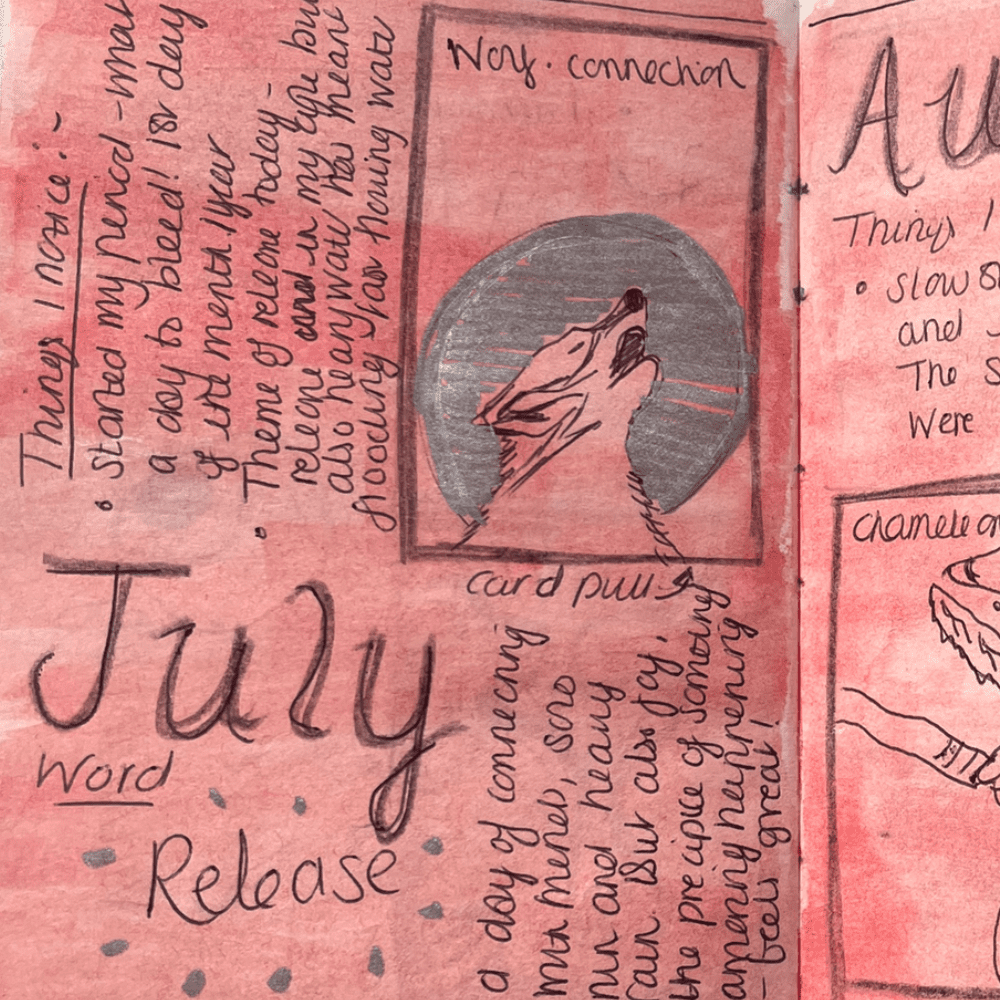 Things I notice:-
• Started my period - what
a day to bleed! 1st day
of
Theme of release today -
release and in my
also heavy water has meant
flooding
Wolf. connection
card pull
July
Word
Release
a day of connecting
with friends,
run and heavy
rain. But also joy,
the precipice of something
amazing happening
- feels great!
Au
Things I
• Slow
and
The S
Were
Chameleon